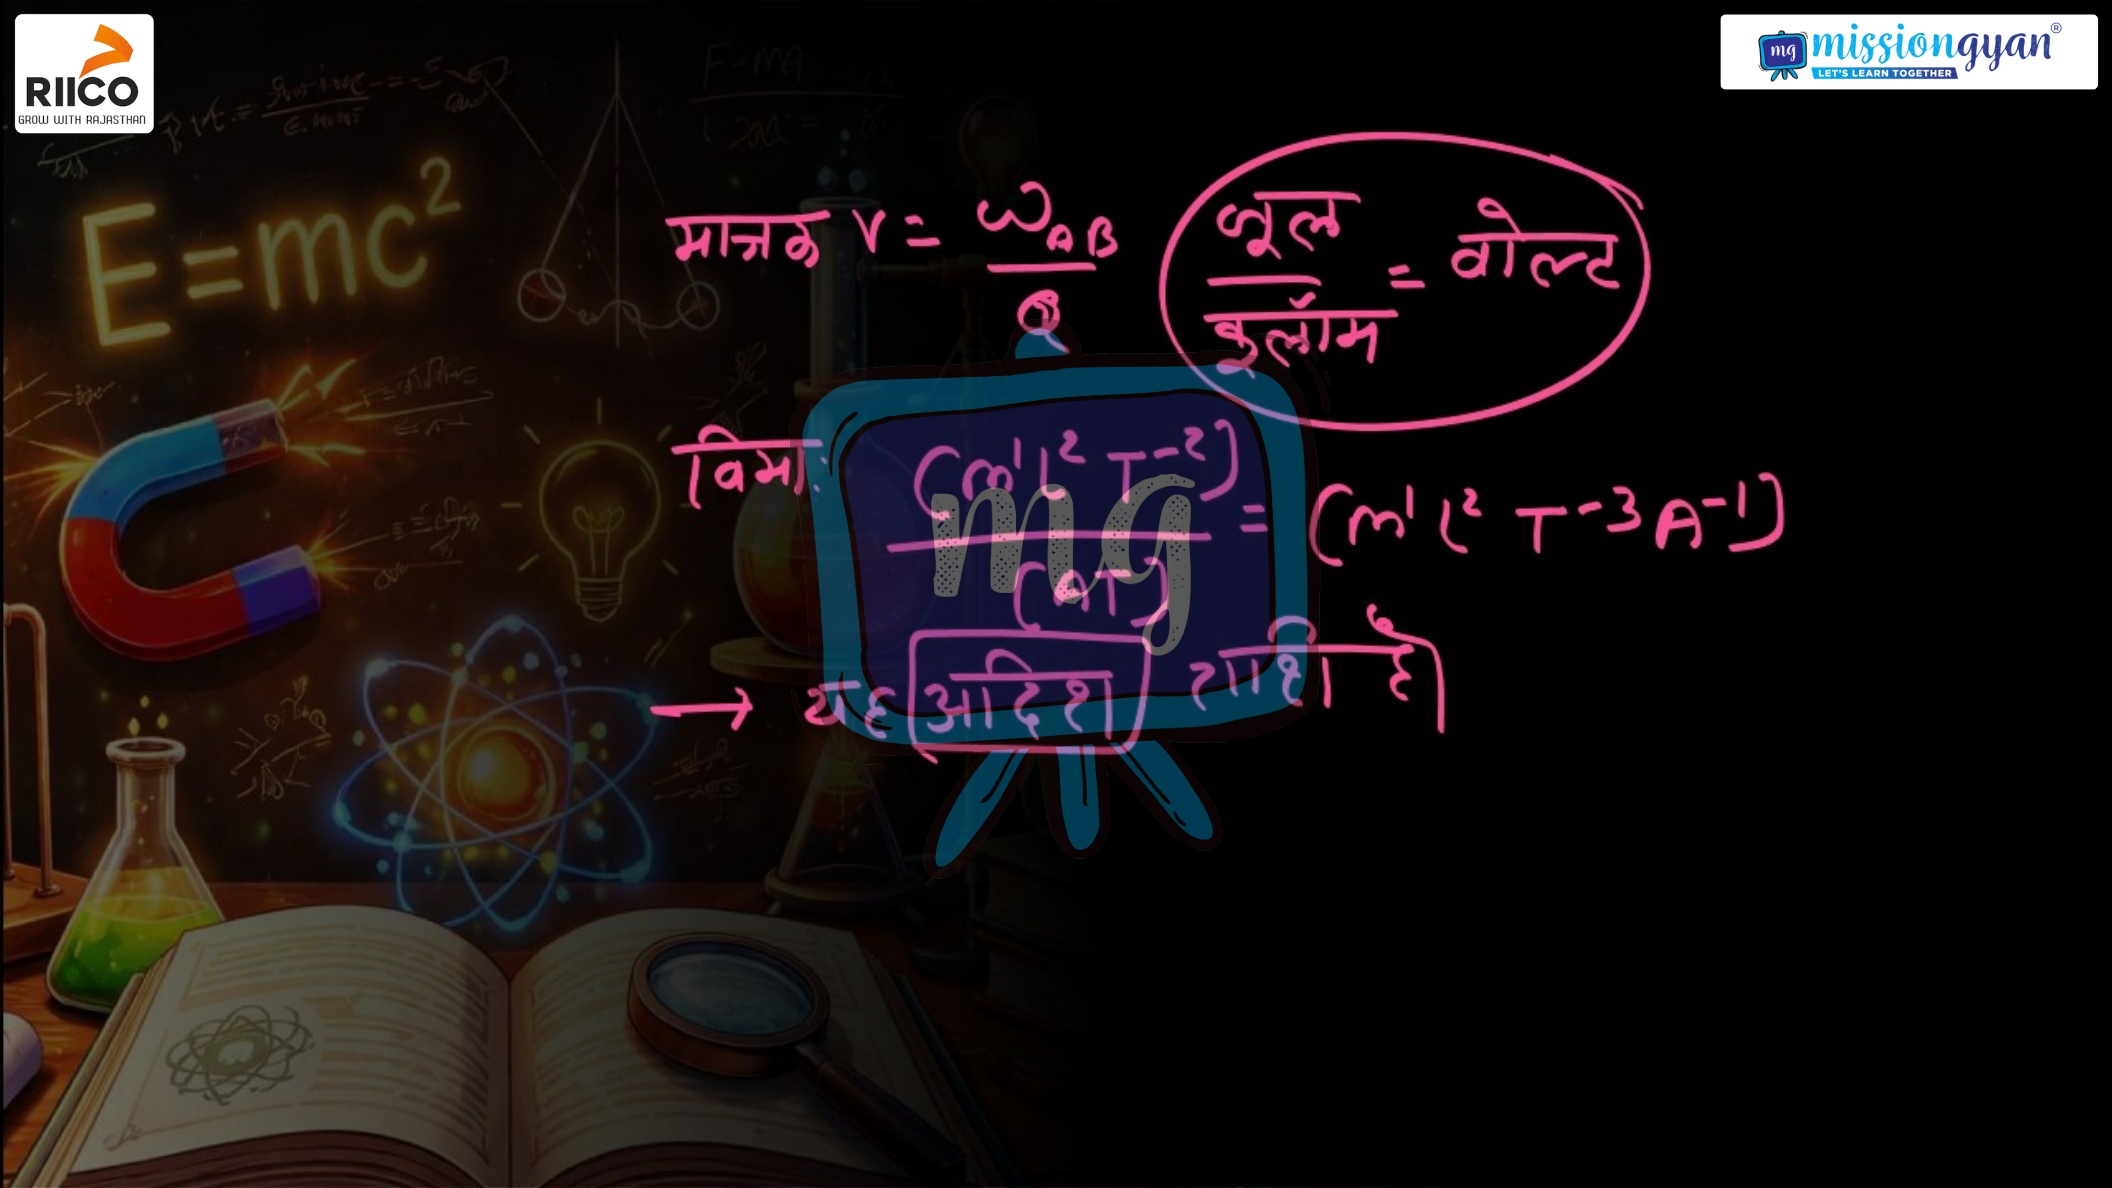 RIICO
GROW WITH RAJASTHAN
mg missiongyan®
LET'S LEARN TOGETHER
E=mc²
F=MA
मात्रक V = W_AB / Q जूल / कुलॉम = वोल्ट
विमा: [M¹L²T⁻²] / [AT] = [M¹L²T⁻³A⁻¹]
mg
→ यह अदिश राशि है।